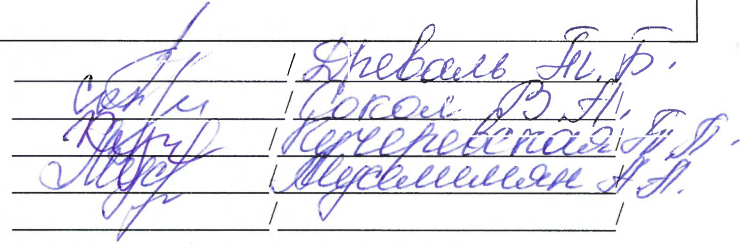 / Древаль Т. Б.
/ Сокол В. П. /
/ Кучеревская Т. П.
/ Мусалимян А. А. /
/ /